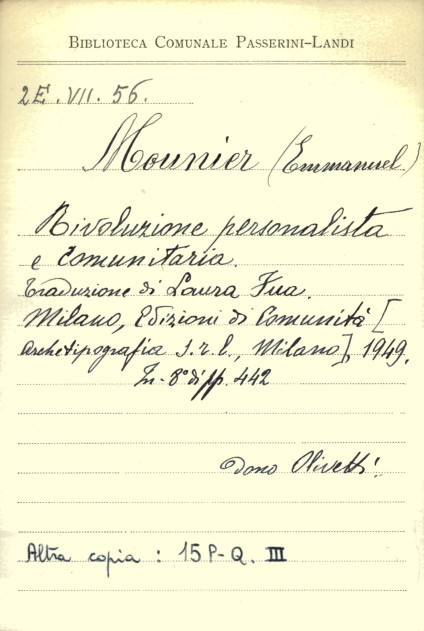 BIBLIOTECA COMUNALE PASSERINI-LANDI
2E. VII. 56.
Mounier (Emmanuel)
Rivoluzione personalista
e comunitaria.
Traduzione di Laura Fua.
Milano, Edizioni di Comunità [
Archetipografia s.r.l., Milano], 1949.
In-8° di pp. 442
Dono Olivetti.
Altra copia : 15 P-Q. III